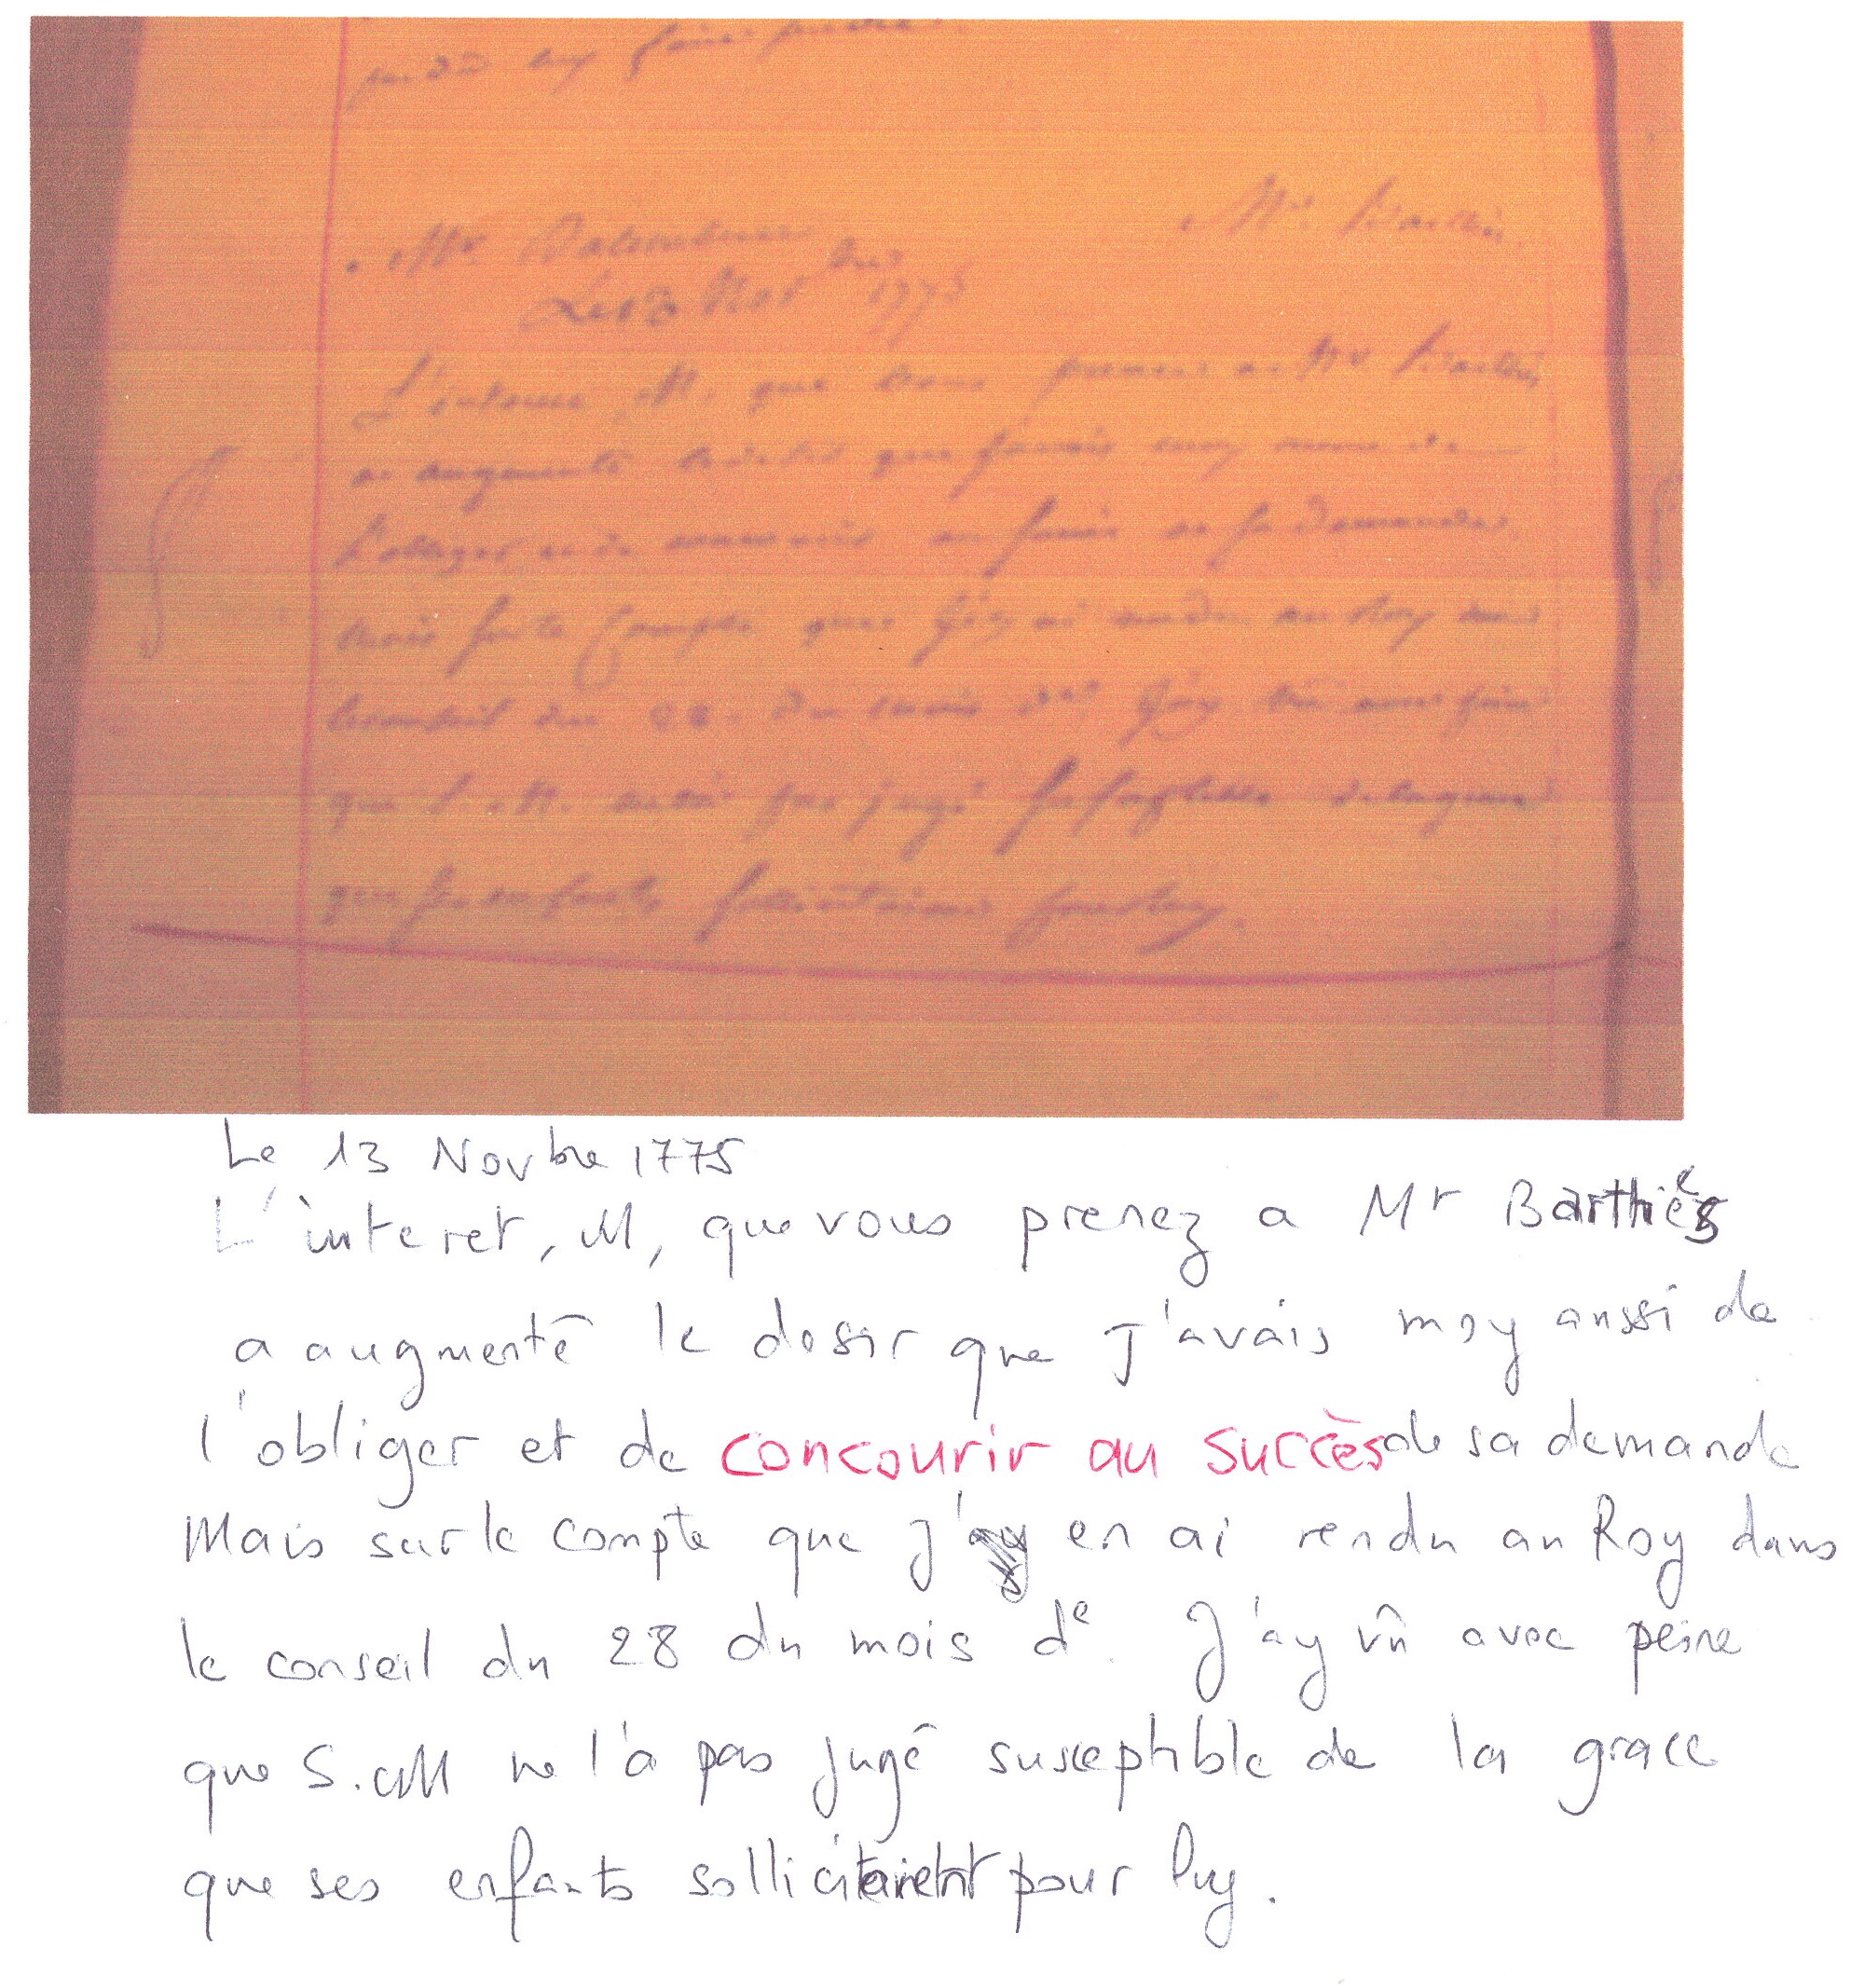 Mr
Mr.
Le 13 Nov bre 1775
L'interest, M. que vous prenez a Mr Barthés
a augmenté le desir que j'avois moy meme de
l'obliger et de concourir au succès de sa demande.
mais sur le compte que j'en ai rendu au Roy dans
le conseil du 28. du mois de. J'ay vû avec peine
que S. M. ne l'a pas jugé susceptible de la grace
que ses enfants sollicitoient pour luy.
Le 13 Novbre 1775
L'interet, M, que vous prenez a Mr Barthiés
a augmenté le desir que J'avais moy aussi de
l'obliger et de concourir au succès de sa demande
Mais sur le compte que j' en ai rendu au Roy dans
le conseil du 28 du mois de. J'ay vû avec peine
que S. M ne l'a pas jugé susceptible de la grace
que ses enfants sollicitaient pour luy.